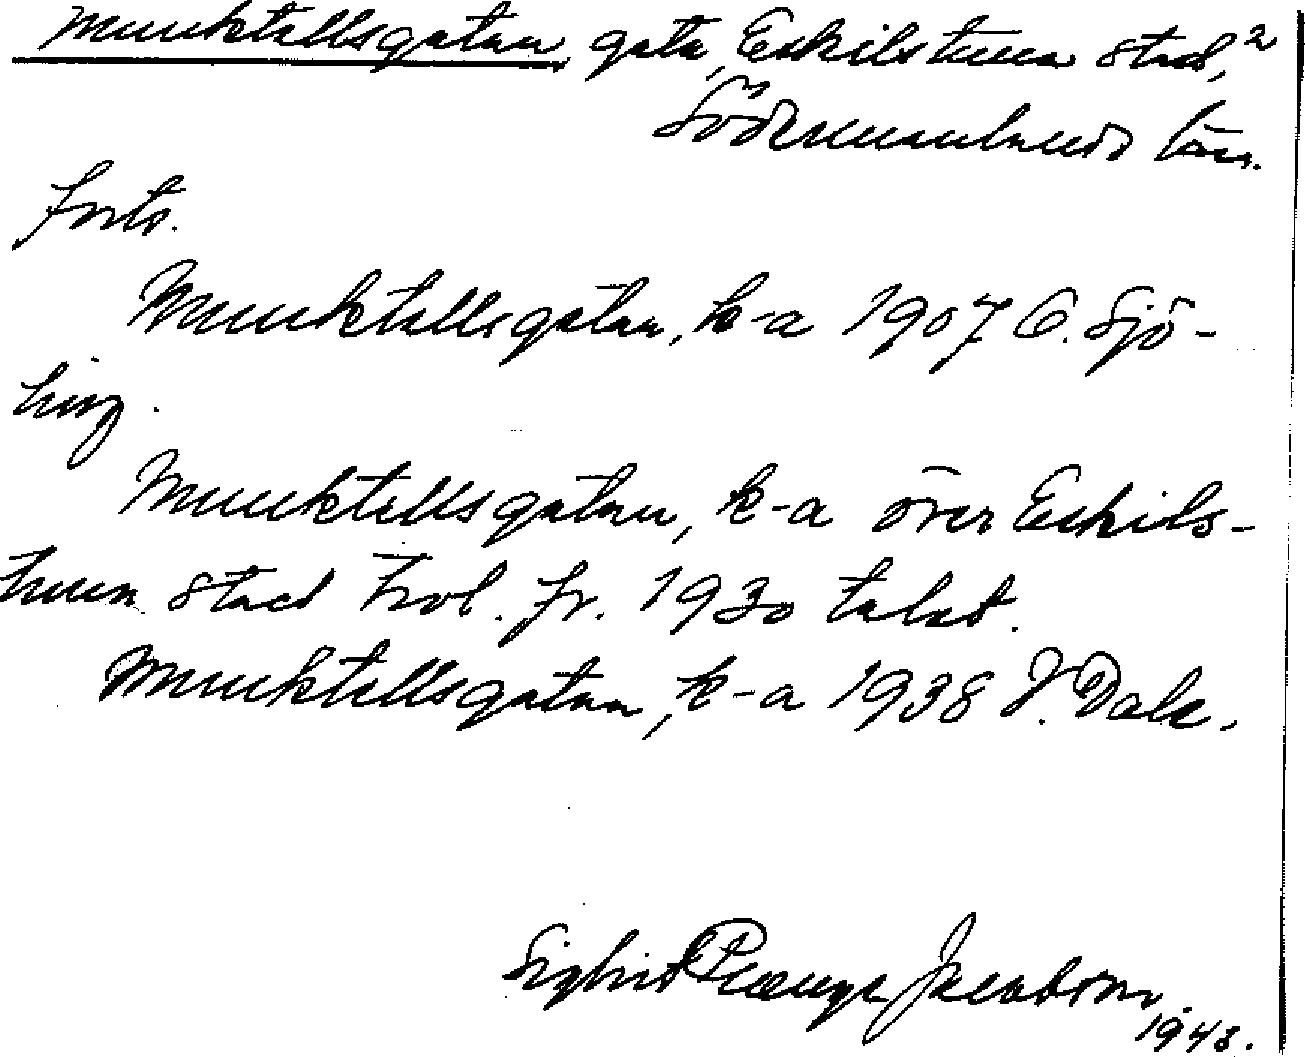 Munktellsgatan, gata, Eskilstuna stad, 2
Södermanlands län.
forts.
Munktellsgatan, k-a 1907 C. Sjö-
ling.
Munktellsgatan, k-a över Eskils-
tuna stad trol. fr. 1930 talet.
Munktellsgatan, k-a 1938 J. Dale.
Sigbrit Plænge Jacobson.
1943.